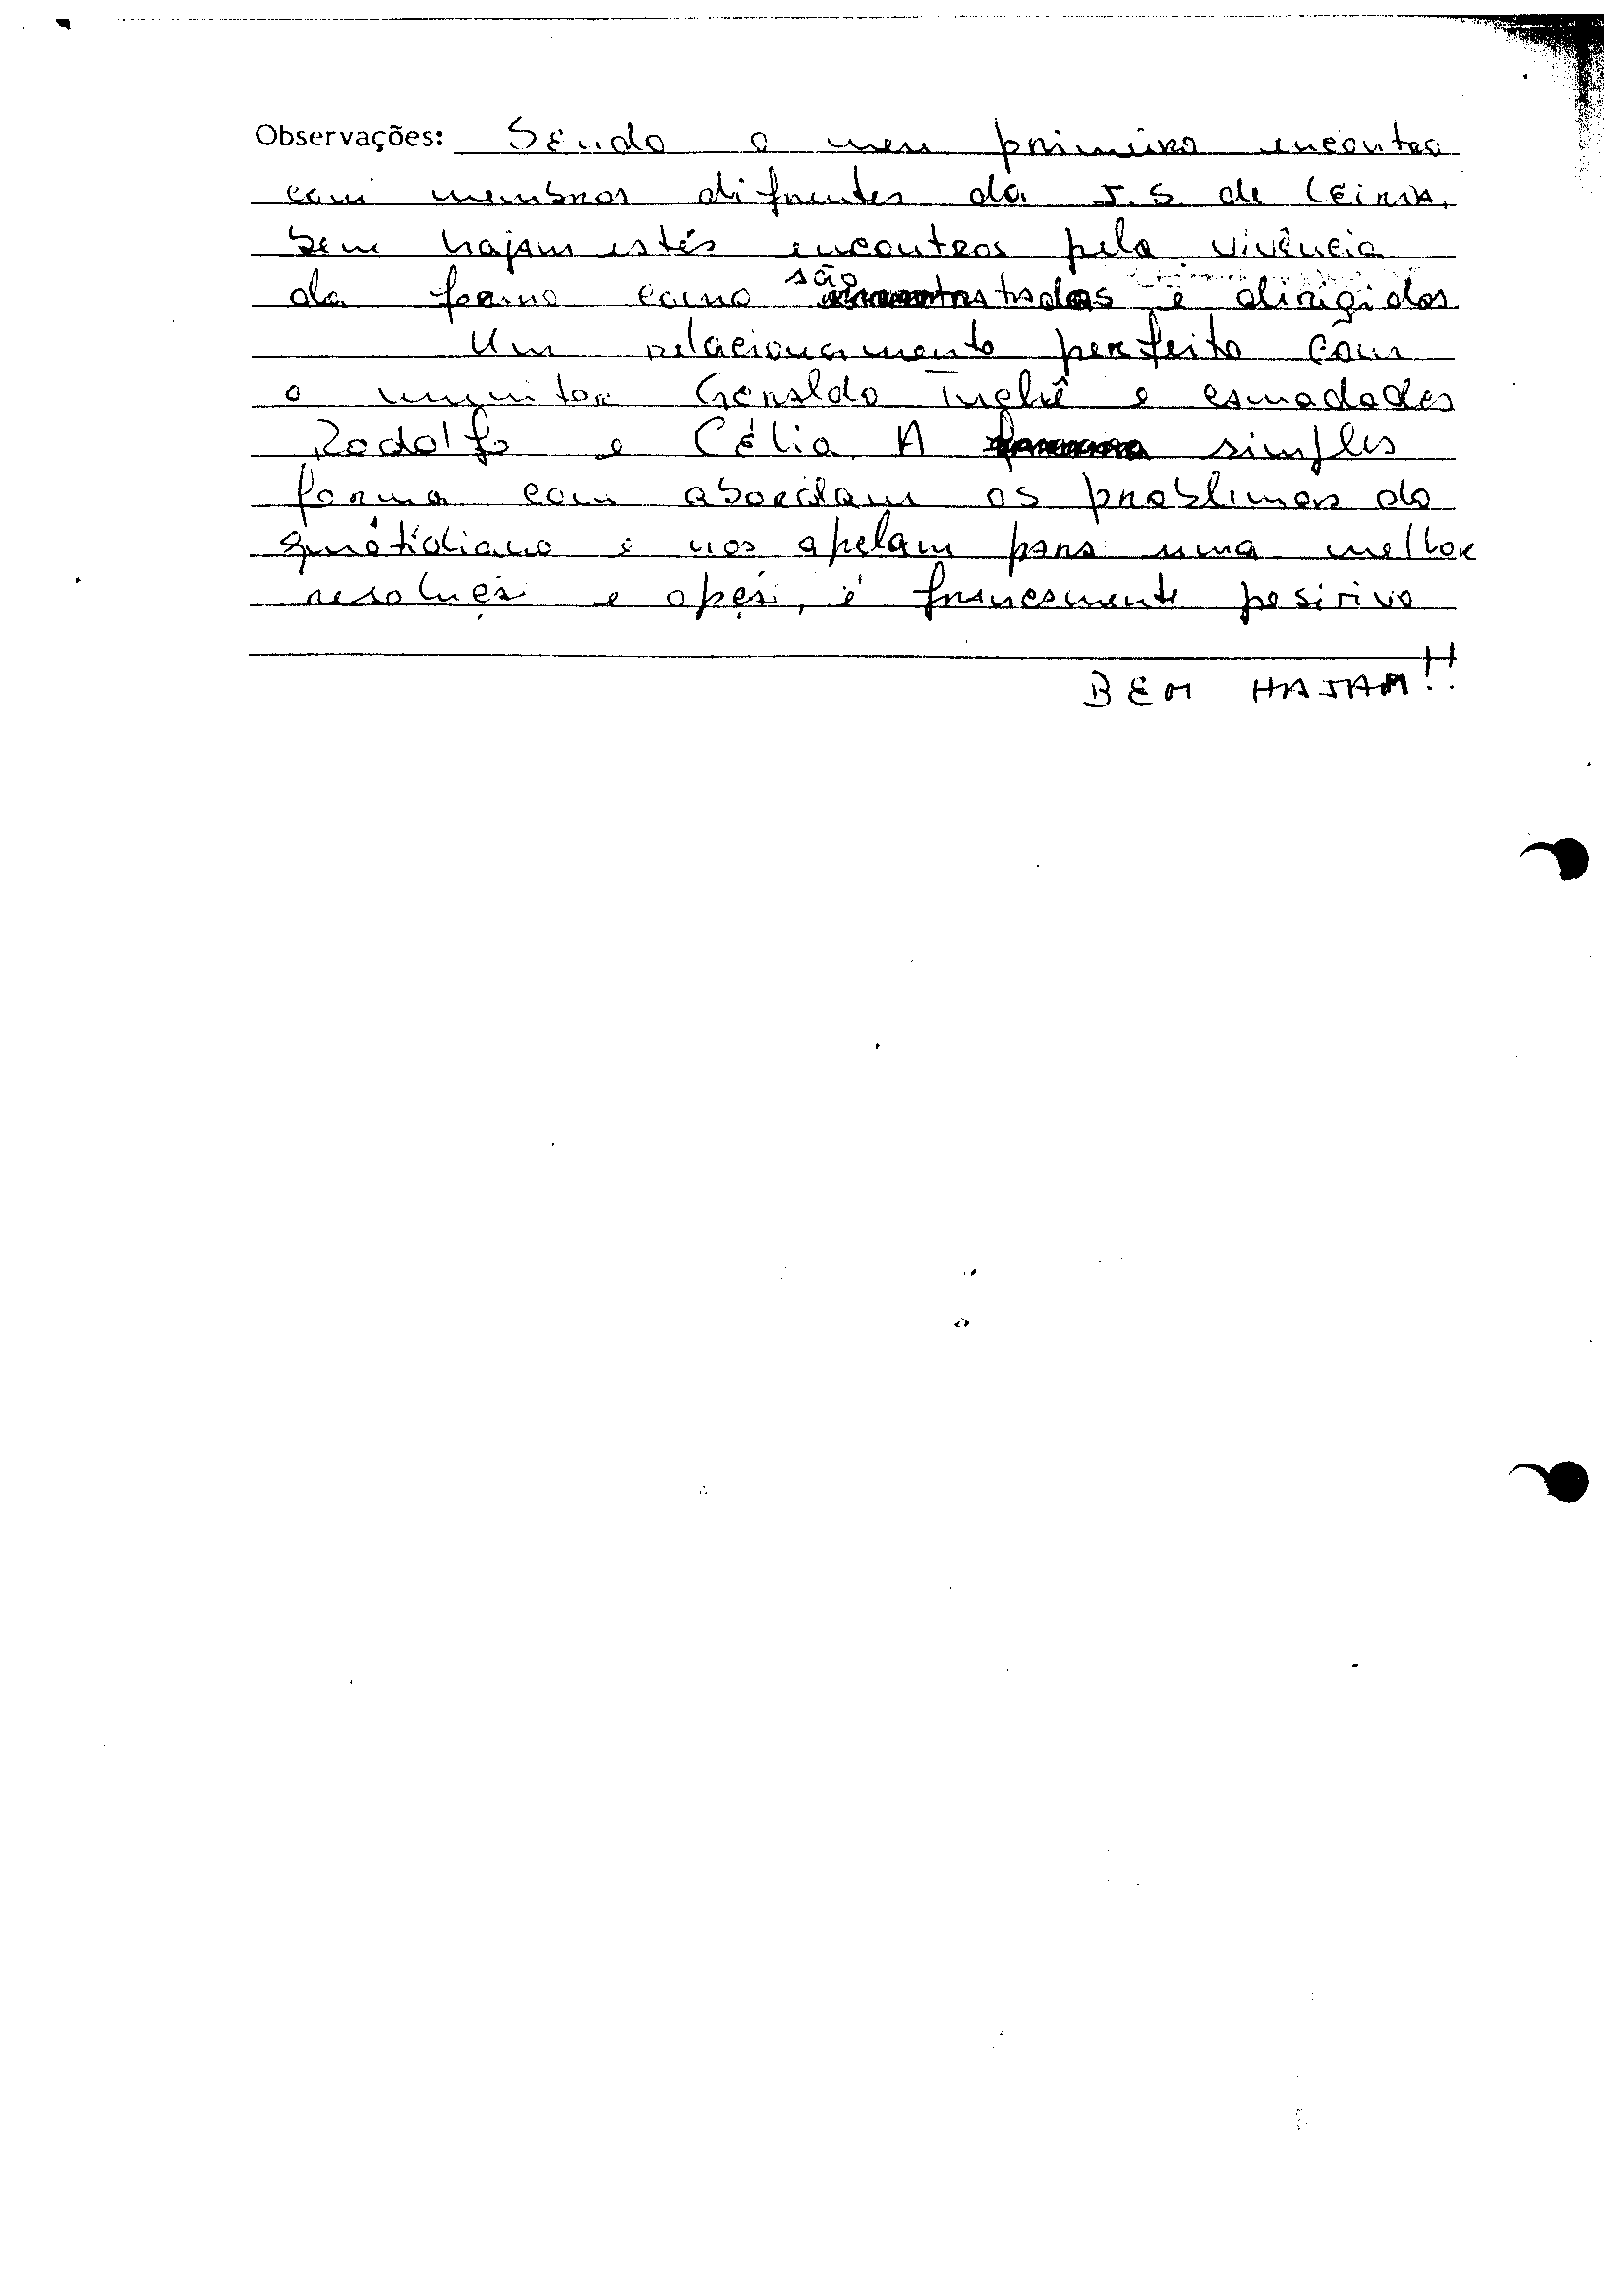 Observações: Sendo o meu primeiro encontro
com membros difrentes da J.S. de Leiria.
bem hajam estés encontros pela vivência
da forma como são tratados e dirigidos
Um relacionamento perfeito com
o monitor Geraldo e camadades
Rodolfo e Célia. A simples
forma com abordam os problemas do
quótidiano e nos apelam para uma melhor
resolução e opção, é francamente positivo
BEM HAJAM!!